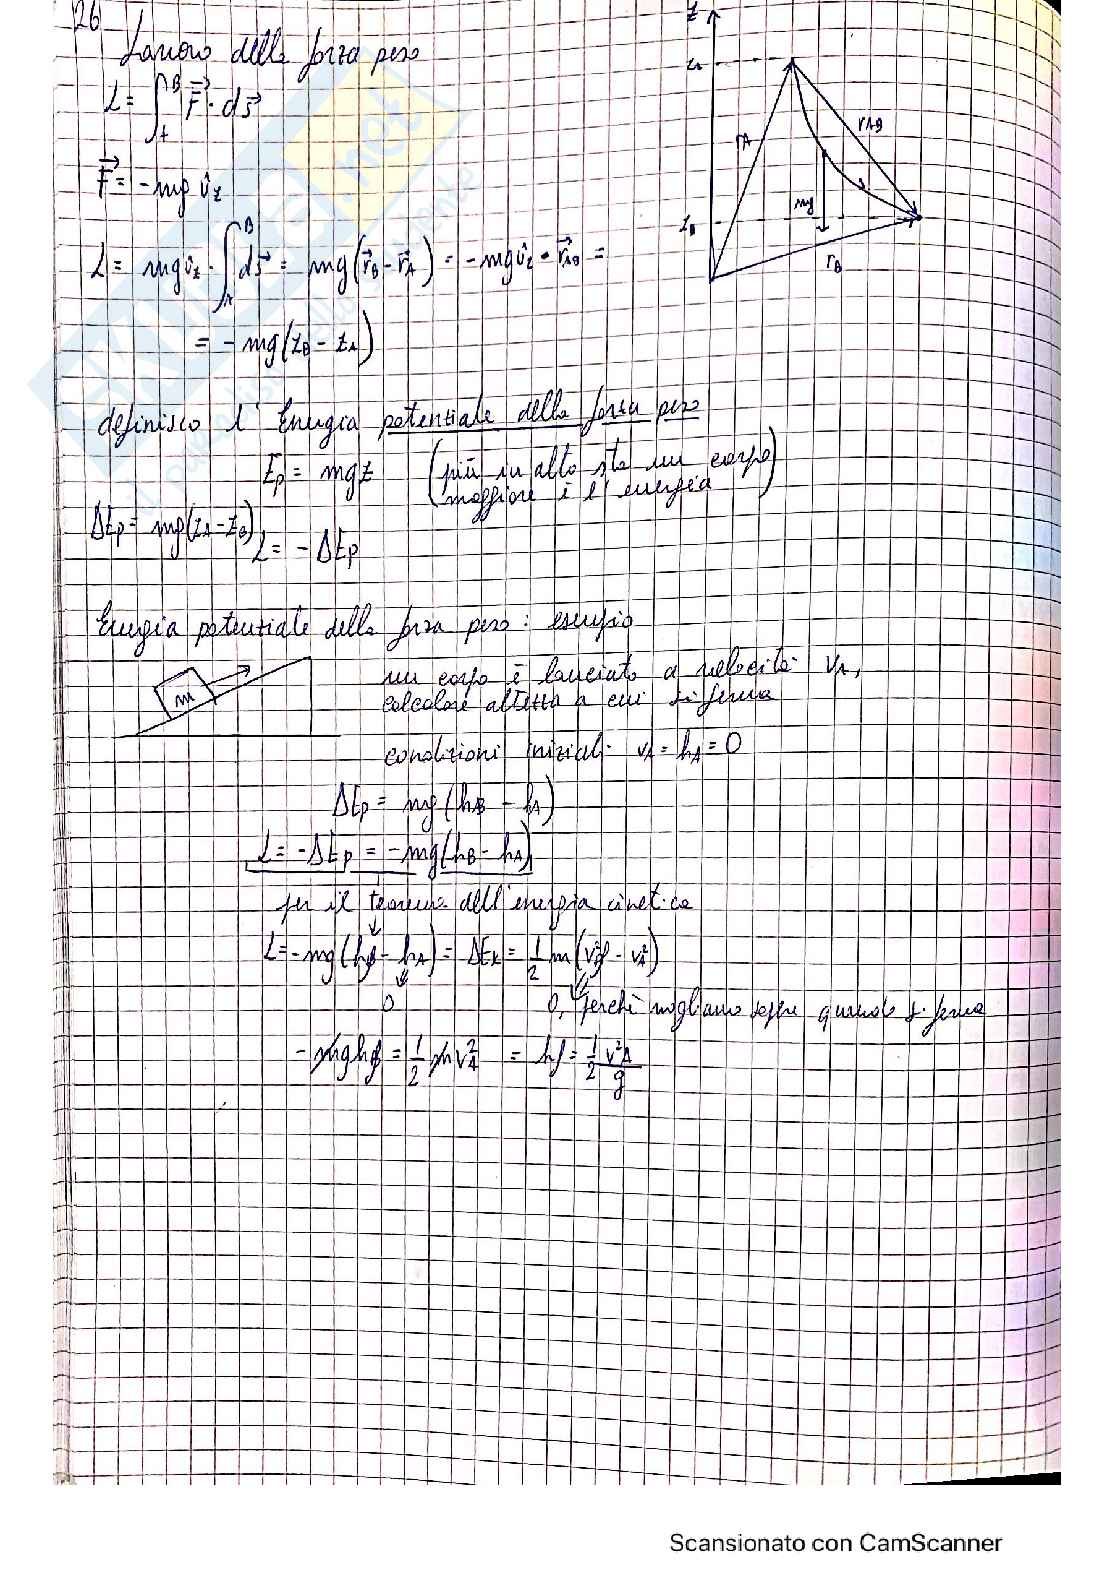 26
Lavoro della forza peso
L = ∫_A^B F⃗ · ds⃗
F⃗ = -mg û_z
L = mg û_z · ∫_A^B ds⃗ = mg (r⃗_B - r⃗_A) = -mg û_z · r⃗_AB =
= - mg (z_B - z_A)
z
z_A
r_A
r_AB
mg
z_B
r_B
definisco l' Energia potenziale della forza peso
E_p = mgz (più in alto sta un corpo
maggiore è l' energia)
ΔE_p = mg(z_A - z_B)
L = - ΔE_p
Energia potenziale della forza peso: esempio
m
un corpo è lanciato a velocità v_A,
calcolare altezza a cui si ferma
condizioni iniziali: v_A = h_A = 0
ΔE_p = mg (h_B - h_A)
L = -ΔE_p = -mg (h_B - h_A)
per il teorema dell'energia cinetica
L = -mg (h_B - h_A) = ΔE_k = 1/2 m (v_B² - v_A²)
0 0, perché vogliamo sapere quando si ferma
- mgh_f = 1/2 m v_A² = h_f = 1/2 v²_A/g
Scansionato con CamScanner